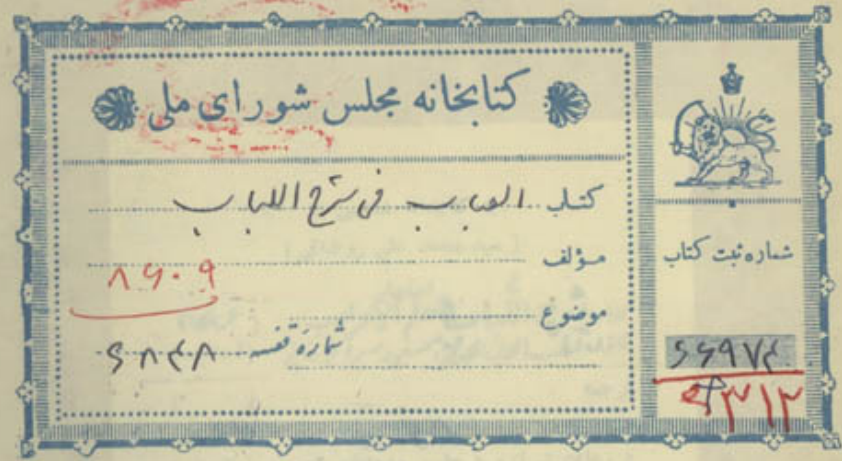 کتابخانه مجلس شورای ملی
کتاب العباب فی شرح اللباب
مؤلف
۸۶۰۹
موضوع
شماره قفسه ۶۸۴۸
شماره ثبت کتاب
۶۶۹۷۴